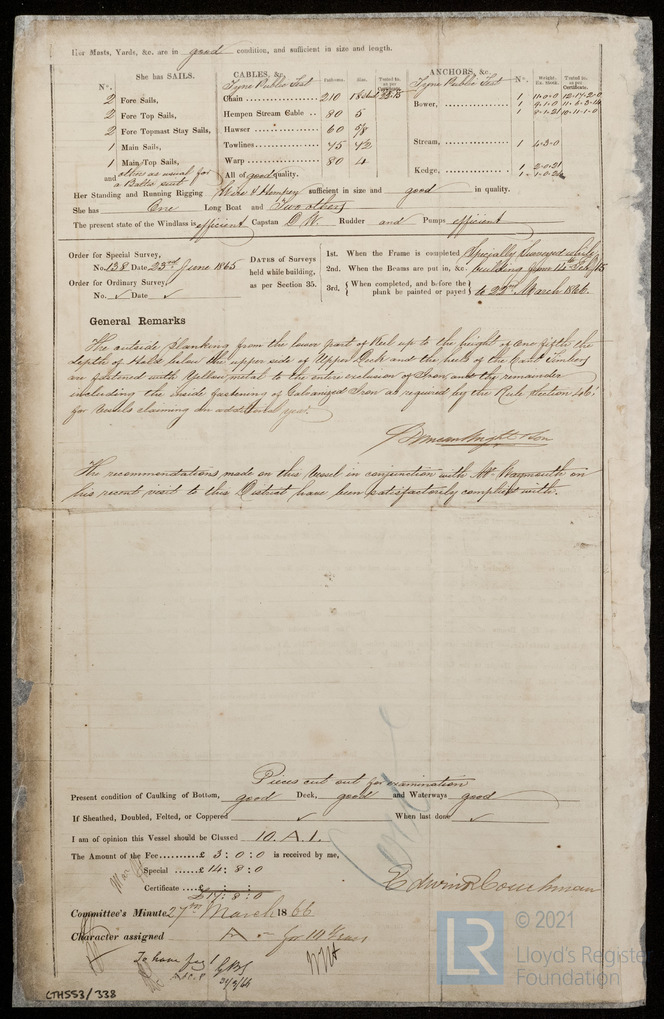 Her Masts, Yards, &c. are in good condition, and sufficient in size and length.
She has SAILS.
N°.
2 Fore Sails,
2 Fore Top Sails,
2 Fore Topmast Stay Sails,
1 Main Sails,
1 Main Top Sails,
and others as usual for
CABLES, &c.
Tyne Public Test
Fathoms. Size. Tested to as per Certificate.
Chain 210
Hempen Stream Cable 80 5
Hawser 60 5/8
Towlines 45
Warp 80 4
All of good quality.
ANCHORS, &c.
Tyne Public Test
N°. Weight. Ex. Stock. Tested to as per Certificate.
Bower, 1 11-0-0 12-17-2-0
1 9-1-0 11-6-3-14
1 8-1-21 10-11-1-0
Stream, 1 4-3-0
Kedge, 1 2-0-21
1 1-0-26
Her Standing and Running Rigging Wire & Hempen sufficient in size and good in quality.
She has One Long Boat and Two others
The present state of the Windlass is efficient Capstan Rudder and Pumps efficient
Order for Special Survey,
No. 138 Date 23rd June 1865
Order for Ordinary Survey,
No. ✓ Date ✓
DATES of Surveys
held while building,
as per Section 35.
1st. When the Frame is completed Specially Surveyed while
2nd. When the Beams are put in, &c. building from 14
3rd, { When completed, and before the plank be painted or payed } to 22nd March 1866.
General Remarks
The outside planking from the lower part of Keel up to the height of one fifth the
depth of Hold below the upper side of Upper Deck and the bolts of the Cant Timbers
are fastened with Yellow metal to the entire exclusion of Iron, and the remainder
including the inside fastening of Galvanized Iron as required by the Rule Section 46,
for Vessels claiming an additional year.
The recommendations made on this Vessel in conjunction with Mr. Waymouth on
his recent visit to this District have been satisfactorily complied with.
Pieces cut out for examination
Present condition of Caulking of Bottom, good Deck, good and Waterways good
If Sheathed, Doubled, Felted, or Coppered ✓ When last done ✓
I am of opinion this Vessel should be Classed 10. A. 1.
The Amount of the Fee £ 3 : 0 : 0 is received by me,
Special £ 14 : 8 : 0
Certificate :
£ 17 : 8 : 0
Edwin R Couchman
Committee's Minute 27th March 1866
Character assigned A - for 10 Years
To have fig 1
LTHSS3/338
LR
© 2021
Lloyd's Register
Foundation